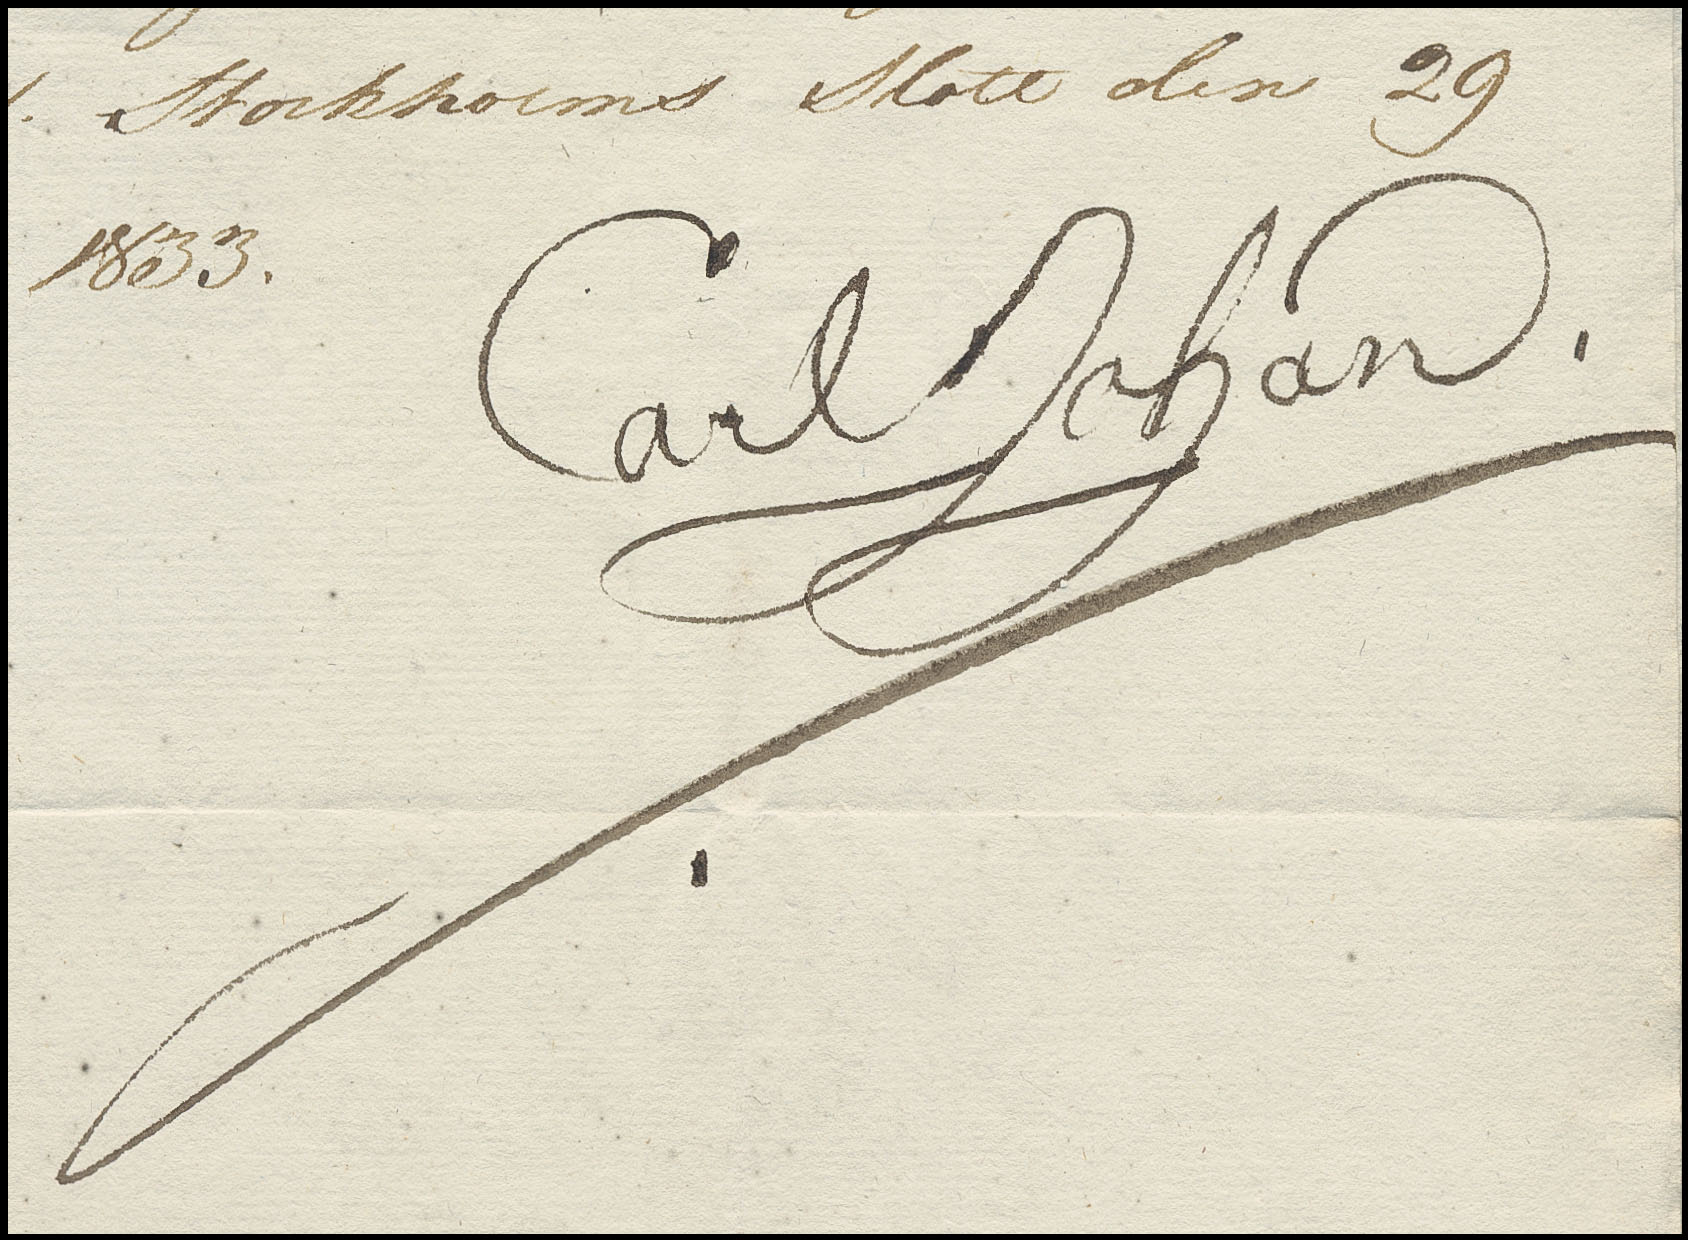 Stockholms Slott den 29
1833.
Carl Johan.